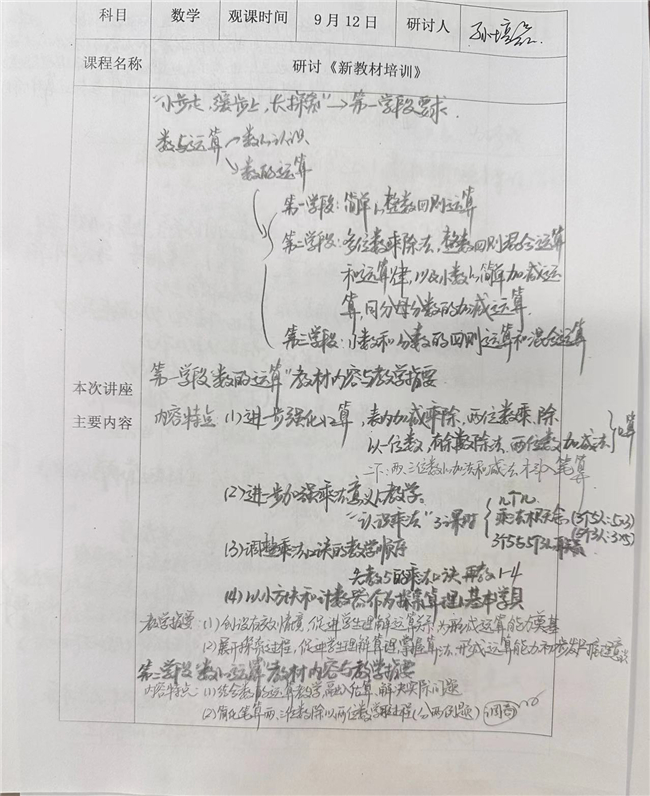 科目 数学 观课时间 9月12日 研讨人 孙培
课程名称 研讨《新教材培训》
本次讲座
主要内容
"小步走,缓步上,长探究"→第一学段要求.
数与运算 数的认识
数的运算
第一学段:简单的整数四则运算
第二学段:多位数乘除法,整数四则混合运算
和运算律,以及小数的简单加减运
算,同分母分数的加减运算.
第三学段:小数和分数的四则运算和混合运算
第一学段"数的运算"教材内容与教学摘要
内容特点 (1)进一步强化口算,表内加减乘除,两位数乘、除
以一位数,有余数除法、两位数加减法 口算
二下:两、三位数的加法和减法,引入笔算
(2)进一步加强乘法意义的教学。
"认识乘法"3课时 几个几
乘法相同加 (3个5人:5×3)
(5个3人:3×5)
3个5 5个3
(3)调整乘法口诀的教学顺序
先教5的乘法口诀再教1-4
(4)以小方块和计数器作为探索算理的基本学具
教学摘要:(1)创设有效情境,促进学生理解运算,为形成运算能力奠基
(2)展开探究过程,促进学生理解算理,掌握算法,形成运算能力和初步的推理意识
第二学段"数的运算"教材内容与教学摘要
内容特点:(1)结合数的运算教学,解决实际问题
(2)简化笔算两、三位数除以两位数学习过程(分两例题) 调商